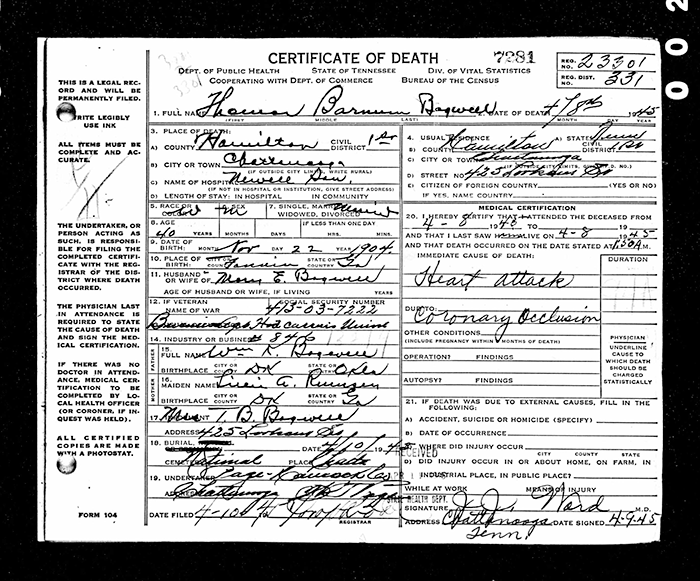 002
CERTIFICATE OF DEATH
7281
REG. NO. 23301
DEPT. OF PUBLIC HEALTH STATE OF TENNESSEE DIV. OF VITAL STATISTICS
COOPERATING WITH DEPT. OF COMMERCE BUREAU OF THE CENSUS
REG. DIST. NO. 331
THIS IS A LEGAL RECORD AND WILL BE PERMANENTLY FILED.
WRITE LEGIBLY
USE INK
ALL ITEMS MUST BE COMPLETE AND ACCURATE.
THE UNDERTAKER, OR PERSON ACTING AS SUCH, IS RESPONSIBLE FOR FILING THE COMPLETED CERTIFICATE WITH THE REGISTRAR OF THE DISTRICT WHERE DEATH OCCURRED.
THE PHYSICIAN LAST IN ATTENDANCE IS REQUIRED TO STATE THE CAUSE OF DEATH AND SIGN THE MEDICAL CERTIFICATION.
IF THERE WAS NO DOCTOR IN ATTENDANCE, MEDICAL CERTIFICATION TO BE COMPLETED BY LOCAL HEALTH OFFICER (OR CORONER, IF INQUEST WAS HELD).
ALL CERTIFIED COPIES ARE MADE WITH A PHOTOSTAT.
FORM 104
1. FULL NAME Thomas Barnum Bagwell DATE OF DEATH 4/8th 1945
(FIRST) (MIDDLE) (LAST) MONTH DAY YEAR
3. PLACE OF DEATH:
A) COUNTY Hamilton CIVIL DISTRICT 1st
B) CITY OR TOWN Chattanooga
(IF OUTSIDE CITY LIMITS, WRITE RURAL)
C) NAME OF HOSPITAL Newell
(IF NOT IN HOSPITAL OR INSTITUTION, GIVE STREET ADDRESS)
D) LENGTH OF STAY: IN HOSPITAL IN COMMUNITY
4. USUAL RESIDENCE A) STATE Tenn
B) COUNTY Hamilton CIVIL DISTRICT
C) CITY OR TOWN
D) STREET NO. 425
E) CITIZEN OF FOREIGN COUNTRY (YES OR NO)
IF YES, NAME COUNTRY
6. SEX M
7. SINGLE, MARRIED, WIDOWED, DIVORCED
8. AGE 40
IF LESS THAN ONE DAY
YEARS MONTHS DAYS HRS. MIN.
9. DATE OF BIRTH: MONTH Nov DAY 22 YEAR 1904
10. PLACE OF BIRTH: CITY OR COUNTY Fannin STATE OR COUNTRY Ga
11. HUSBAND OR WIFE OF Mary E. Bagwell
AGE OF HUSBAND OR WIFE, IF LIVING YEARS
12. IF VETERAN NAME OF WAR SOCIAL SECURITY NUMBER
413-03-7222
14. INDUSTRY OR BUSINESS # 846
FATHER
15. FULL NAME Wm R. Bagwell
BIRTHPLACE CITY OR COUNTY DK STATE OR COUNTRY
MOTHER
16. MAIDEN NAME
BIRTHPLACE CITY OR COUNTY DK STATE OR COUNTRY Ga
17. INFORMANT Mrs T. B. Bagwell
ADDRESS 425
18. BURIAL, DATE 4/10/1945
CEMETERY National PLACE Chatta
19. UNDERTAKER
ADDRESS Chattanooga
DATE FILED 4-10-45
REGISTRAR
MEDICAL CERTIFICATION
20. I HEREBY CERTIFY THAT I ATTENDED THE DECEASED FROM
AND THAT I LAST SAW ALIVE ON 4-8 1945
AND THAT DEATH OCCURRED ON THE DATE STATED AT 1:50A M.
IMMEDIATE CAUSE OF DEATH: DURATION
Heart attack
DUE TO: Coronary Occlusion
OTHER CONDITIONS
(INCLUDE PREGNANCY WITHIN 3 MONTHS OF DEATH)
OPERATION? FINDINGS
AUTOPSY? FINDINGS
PHYSICIAN UNDERLINE CAUSE TO WHICH DEATH SHOULD BE CHARGED STATISTICALLY
21. IF DEATH WAS DUE TO EXTERNAL CAUSES, FILL IN THE FOLLOWING:
A) ACCIDENT, SUICIDE OR HOMICIDE (SPECIFY)
B) DATE OF OCCURRENCE
C) WHERE DID INJURY OCCUR
CITY COUNTY STATE
D) DID INJURY OCCUR IN OR ABOUT HOME, ON FARM, IN INDUSTRIAL PLACE, IN PUBLIC PLACE?
WHILE AT WORK MEANS OF INJURY
RECEIVED
STATE HEALTH DEPT.
SIGNATURE J. J. Ward M.D.
ADDRESS Chattanooga Tenn DATE SIGNED 4-9-45